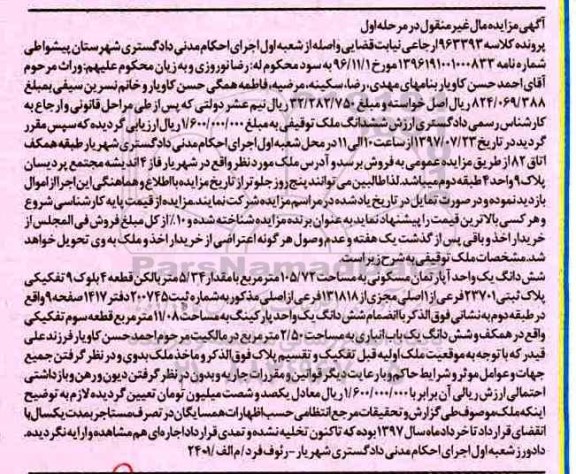 آگهی مزایده مال غیر منقول در مرحله اول
پرونده کلاسه ۹۶۳۳۹۳ ارجاعی نیابت قضایی واصله از شعبه اول اجرای احکام مدنی دادگستری شهرستان پیشوا طی
شماره نامه ۱۳۹۶۱۹۱۰۰۱۰۰۰۸۳۳ مورخ ۹۶/۱۱/۱ به سود محکوم له: رضا نوروزی و به زیان محکوم علیهم: وراث مرحوم
آقای احمد حسن کاویار بنامهای مهدی، رضا، سکینه، مرضیه، فاطمه همگی حسن کاویار و خانم نسرین سیفی بمبلغ
۸۲۴/۰۶۹/۳۸۸ ریال اصل خواسته و مبلغ ۳۲/۲۸۲/۷۵۰ ریال نیم عشر دولتی که پس از طی مراحل قانونی و ارجاع به
کارشناس رسمی دادگستری ارزش ششدانگ ملک توقیفی به مبلغ ۱/۶۰۰/۰۰۰/۰۰۰ ریال ارزیابی گردیده که سپس مقرر
گردید در تاریخ ۱۳۹۷/۰۷/۲۳ از ساعت ۱۰ الی ۱۱ در محل شعبه اول اجرای احکام مدنی دادگستری شهریار طبقه همکف
اتاق ۸۲ از طریق مزایده عمومی به فروش برسد و آدرس ملک مورد نظر واقع در شهریار فاز ۴ اندیشه مجتمع پردیسان
پلاک ۹ واحد ۴ طبقه دوم میباشد. لذا طالبین می توانند پنج روز جلوتر از تاریخ مزایده با اطلاع و هماهنگی این اجرا از اموال
بازدید نموده و در صورت تمایل در تاریخ یاد شده در مراسم مزایده شرکت نمایند. مزایده از قیمت پایه کارشناسی شروع
و هر کسی بالاترین قیمت را پیشنهاد نماید به عنوان برنده مزایده شناخته شده و ۱۰٪ از کل مبلغ فروش فی المجلس از
خریدار اخذ و باقی پس از گذشت یک هفته و عدم وصول هر گونه اعتراضی از خریدار اخذ و ملک به وی تحویل خواهد
شد. مشخصات ملک توقیفی به شرح زیر است.
شش دانگ یک واحد آپارتمان مسکونی به مساحت ۱۰۵/۷۳ مترمربع با مقدار ۵/۳۴ متر بالکن قطعه ۴ بلوک ۹ تفکیکی
پلاک ثبتی ۲۳۷۰۱ فرعی از ۱ اصلی مجزی از ۱۲۱۸۱۸ فرعی از اصلی مذکور به شماره ثبت ۲۰۰۷۴۵ دفتر ۱۴۱۷ صفحه ۹ واقع
در طبقه دوم به نشانی فوق الذکر با انضمام شش دانگ یک واحد پارکینگ به مساحت ۱۱/۰۸ متر مربع قطعه سوم تفکیکی
واقع در همکف و شش دانگ یک باب انباری به مساحت ۲/۵۰ مترمربع در مالکیت مرحوم احمد حسن کاویار فرزند علی
قید که با توجه به موقعیت ملک اولیه قبل تفکیک و تقسیم پلاک فوق الذکر و ماخذ ملک بدوی و در نظر گرفتن جمیع
جهات و عوامل موثر و شرایط حاکم و با رعایت دیگر قوانین و مقررات جاریه و بدون در نظر گرفتن دیون و رهن و بازداشتی
احتمالی ارزش ریالی آن برابر با ۱/۶۰۰/۰۰۰/۰۰۰ ریال معادل یکصد و شصت میلیون تومان تعیین گردیده لازم به توضیح
اینکه ملک موصوف طی گزارش و تحقیقات مرجع انتظامی حسب اظهارات همسایگان در تصرف مستاجر بمدت یکسال با
انقضای قرارداد تا خرداد ماه سال ۱۳۹۷ بوده که تاکنون تخلیه نشده و تمدی قرارداد اجاره ای هم مشاهده و ارایه نگردیده.
دادورز شعبه اول اجرای احکام مدنی دادگستری شهریار - رئوف فرد / م الف ۲۴۰۱/
ParsNamadData